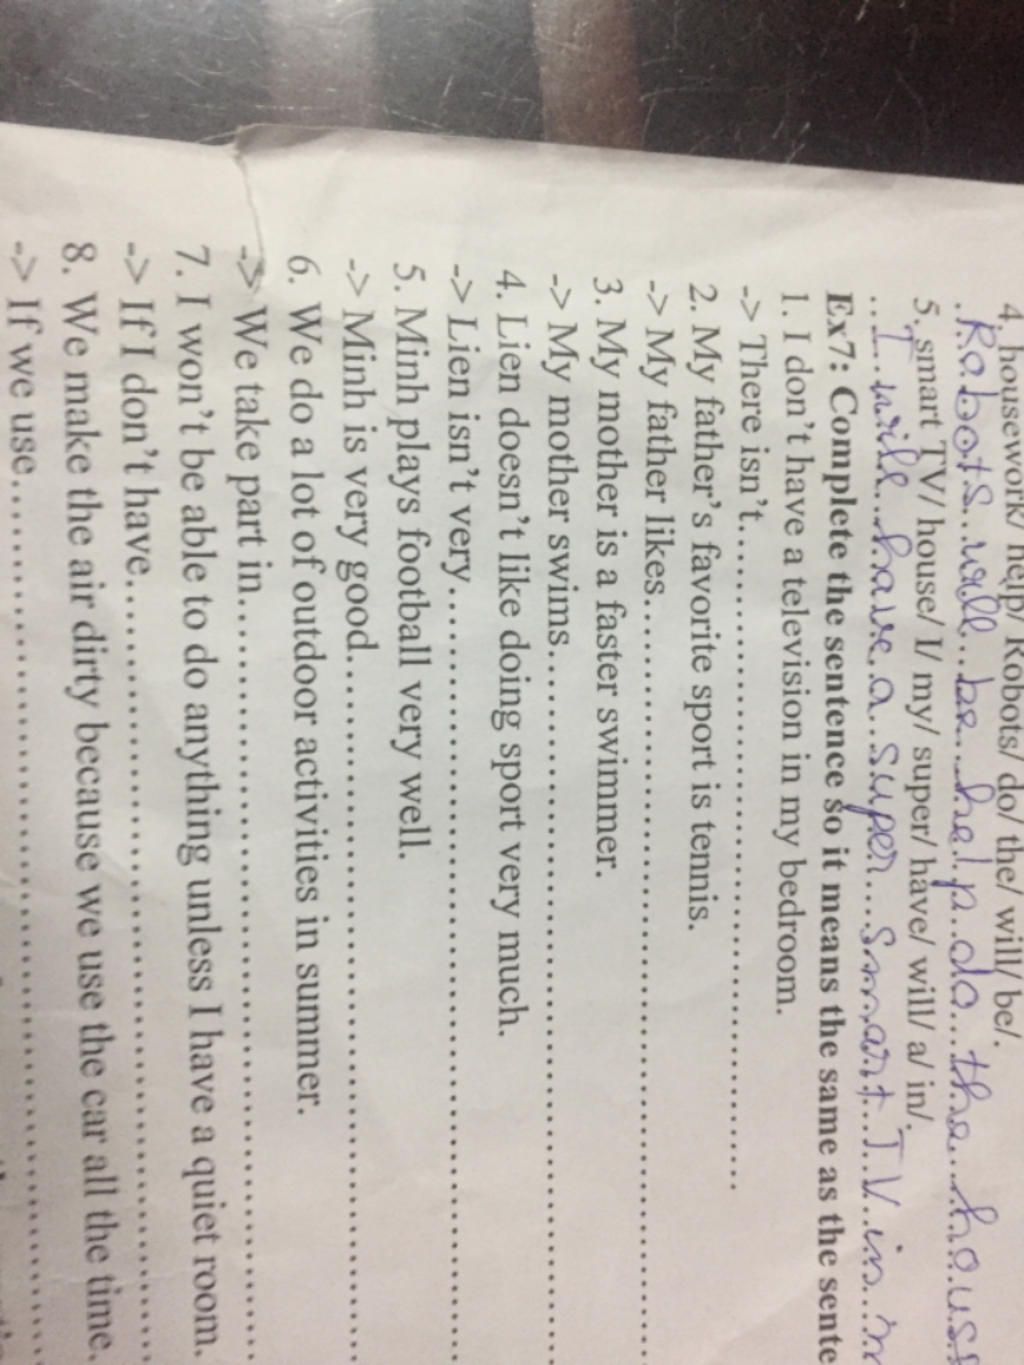 4. housework/ help/ Robots/ do/ the/ will/ be/.
.Robots..will..be...help..do...the...hous
5. smart TV/ house/ I/ my/ super/ have/ will/ a/ in/.
...I..will..have..a..super...smart..TV..in..m
Ex7: Complete the sentence so it means the same as the sente
1. I don't have a television in my bedroom.
-> There isn't.............................................
2. My father's favorite sport is tennis.
-> My father likes.............................................
3. My mother is a faster swimmer.
-> My mother swims.............................................
4. Lien doesn't like doing sport very much.
-> Lien isn't very.............................................
5. Minh plays football very well.
-> Minh is very good.............................................
6. We do a lot of outdoor activities in summer.
-> We take part in.............................................
7. I won't be able to do anything unless I have a quiet room.
-> If I don't have.............................................
8. We make the air dirty because we use the car all the time.
-> If we use.............................................